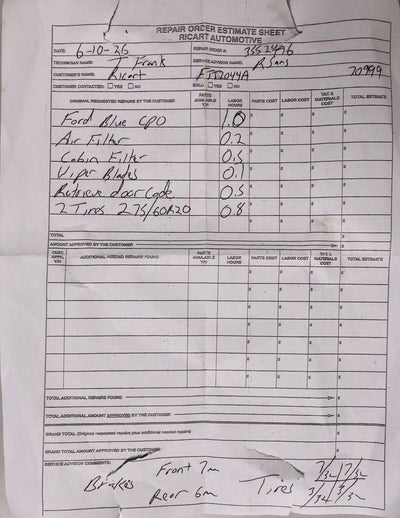 REPAIR ORDER ESTIMATE SHEET
RICART AUTOMOTIVE
DATE: 6-10-26 REPAIR ORDER #: 3552496
TECHNICIAN NAME: T Frank SERVICE ADVISOR NAME: R Sans
CUSTOMER'S NAME: Ricart FTT2044A 70999
CUSTOMER CONTACTED: ☐ YES ☐ NO SOLD: ☐ YES ☐ NO
ORIGINAL REQUESTED REPAIRS BY THE CUSTOMER PARTS AVAILABLE Y/N LABOR HOURS PARTS COST LABOR COST TAX & MATERIALS COST TOTAL ESTIMATE
Ford Blue CPO 1.0 $ $ $ $
Air Filter 0.2 $ $ $ $
Cabin Filter 0.5 $ $ $ $
Wiper Blades 0.1 $ $ $ $
Retrieve door Code 0.5 $ $ $ $
2 Tires 275/60R20 0.8 $ $ $ $
TOTAL $
AMOUNT APPROVED BY THE CUSTOMER $
CUST. APPR. Y/N ADDITIONAL NEEDED REPAIRS FOUND PARTS AVAILABLE Y/N LABOR HOURS PARTS COST LABOR COST TAX & MATERIALS COST TOTAL ESTIMATE
TOTAL ADDITIONAL REPAIRS FOUND $
TOTAL ADDITIONAL AMOUNT APPROVED BY THE CUSTOMER $
GRAND TOTAL (Original requested repairs plus additional needed repairs) $
GRAND TOTAL AMOUNT APPROVED BY THE CUSTOMER $
SERVICE ADVISOR COMMENTS:
Brakes Front 7m Tires 7/32 7/32
Rear 6m 3/32 3/32